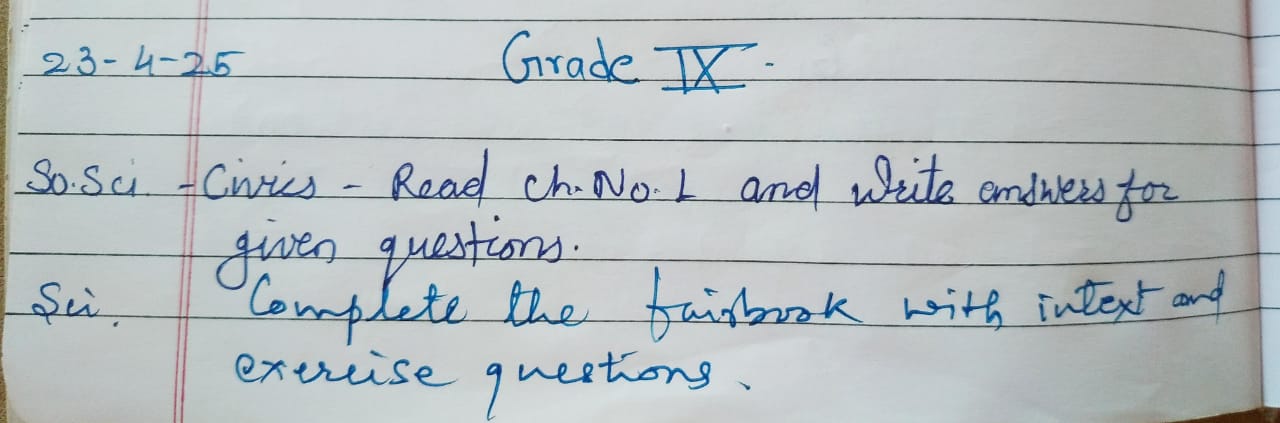 23-4-25 Grade IX.
So.Sci. - Civics - Read Ch. No. 1 and write answers for
given questions.
Sci. Complete the fairbook with intext and
exercise questions.